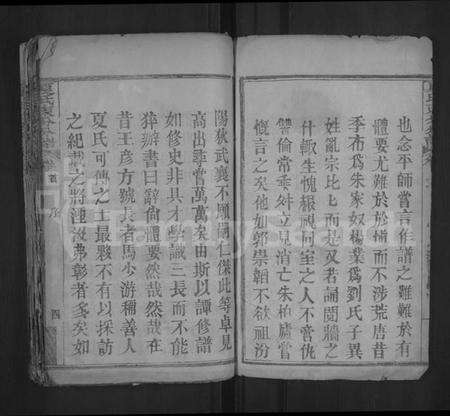 也念平師嘗言作譜之難難於有
體要尤難於於摭而不涉荒唐昔
季布爲朱家奴楊業爲劉氏子異
姓亂宗比比而是又若誦鬩牆之
什輒生愧報視同室之人不啻仇
讐倫常乖舛立見消亡朱柏廬嘗
慨言之矣他如郭崇韜不欲祖汾
陽狄武襄不願同仁傑此等卓見
高出尋常萬萬矣由斯以譚修譜
如修史非具才學識三長而不能
猝辦書曰辭尚體要然哉然哉在
昔王彦方號長者馬少游稱善人
夏氏可傳之士最夥不有以採訪
之紀載之將湮沒弗彰者多矣如
夏氏
卷首
序
四